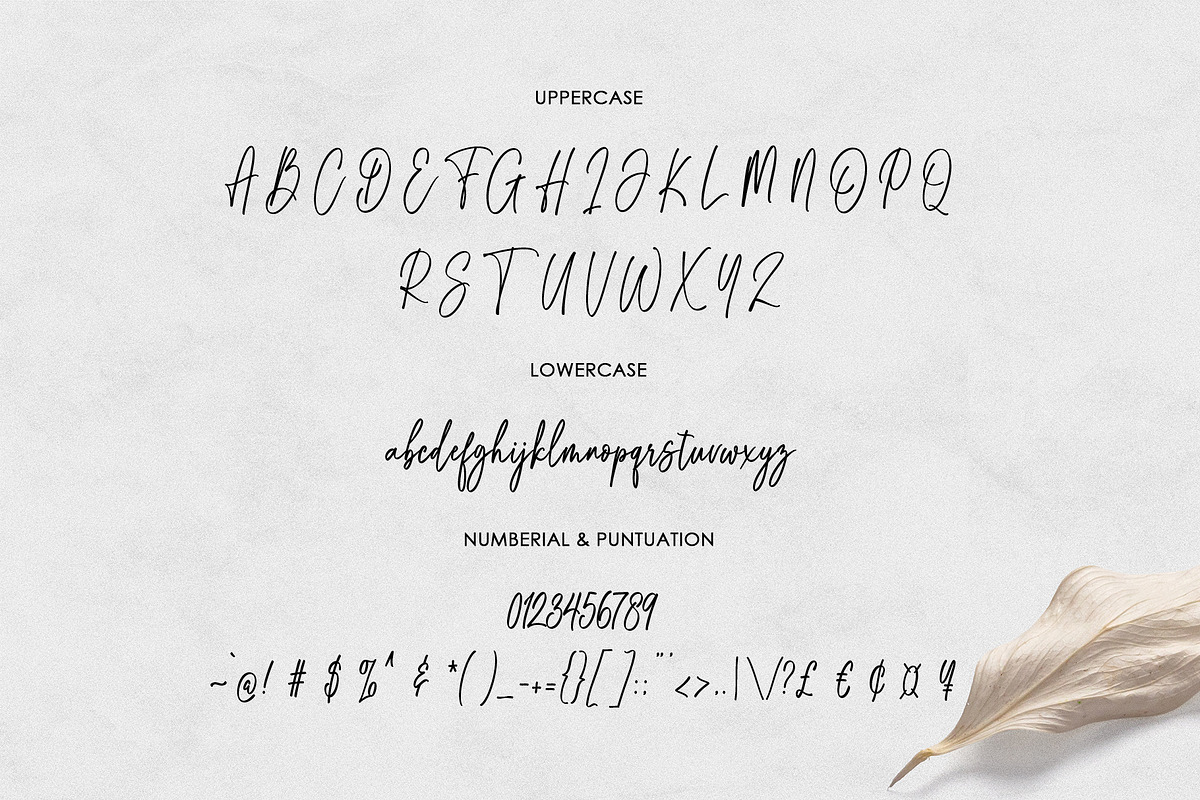 UPPERCASE
ABCDEFGHIJKLMNOPQ
RSTUVWXYZ
LOWERCASE
abcdefghijklmnopqrstuvwxyz
NUMBERIAL & PUNTUATION
0123456789
~`@! # $ %^ & *( )_-+={}[ ]:;"' <>,.|\/?£ € ¢ ¤ ¥